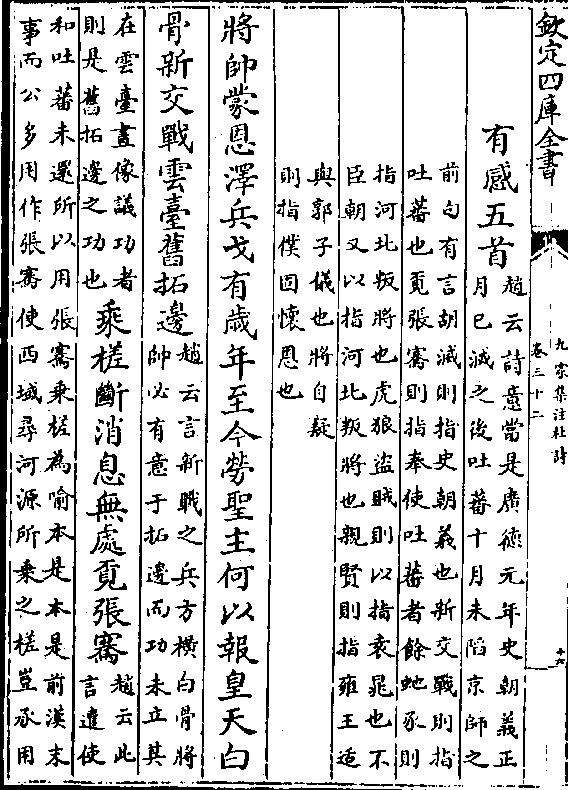 欽定四庫全書
九家集注杜詩
卷三十二
十六
有感五首
趙云詩意當是廣德元年史朝義正
月已滅之後吐蕃十月未陷京師之
前句有言胡滅則指史朝義也新交戰則指
吐蕃也覓張騫則指奉使吐蕃者餘虵豕則
指河北叛將也虎狼盜賊則以指袁晁也不
臣朝又以指河北叛將也親賢則指雍王适
與郭子儀也將自疑
則指僕固懷恩也
將帥蒙恩澤兵戈有歲年至今勞聖主何以報皇天白
骨新交戰雲臺舊拓邊
趙云言新戰之兵方橫白骨將
帥必有意于拓邊而功未立其
在雲臺畫像議功者
則是舊拓邊之功也
乘槎斷消息無處覓張騫
趙云此
言遣使
和吐蕃未還所以用張騫乘槎為喻本是本是前漢末
事而公多用作張騫使西域尋河源所乘之槎豈承用